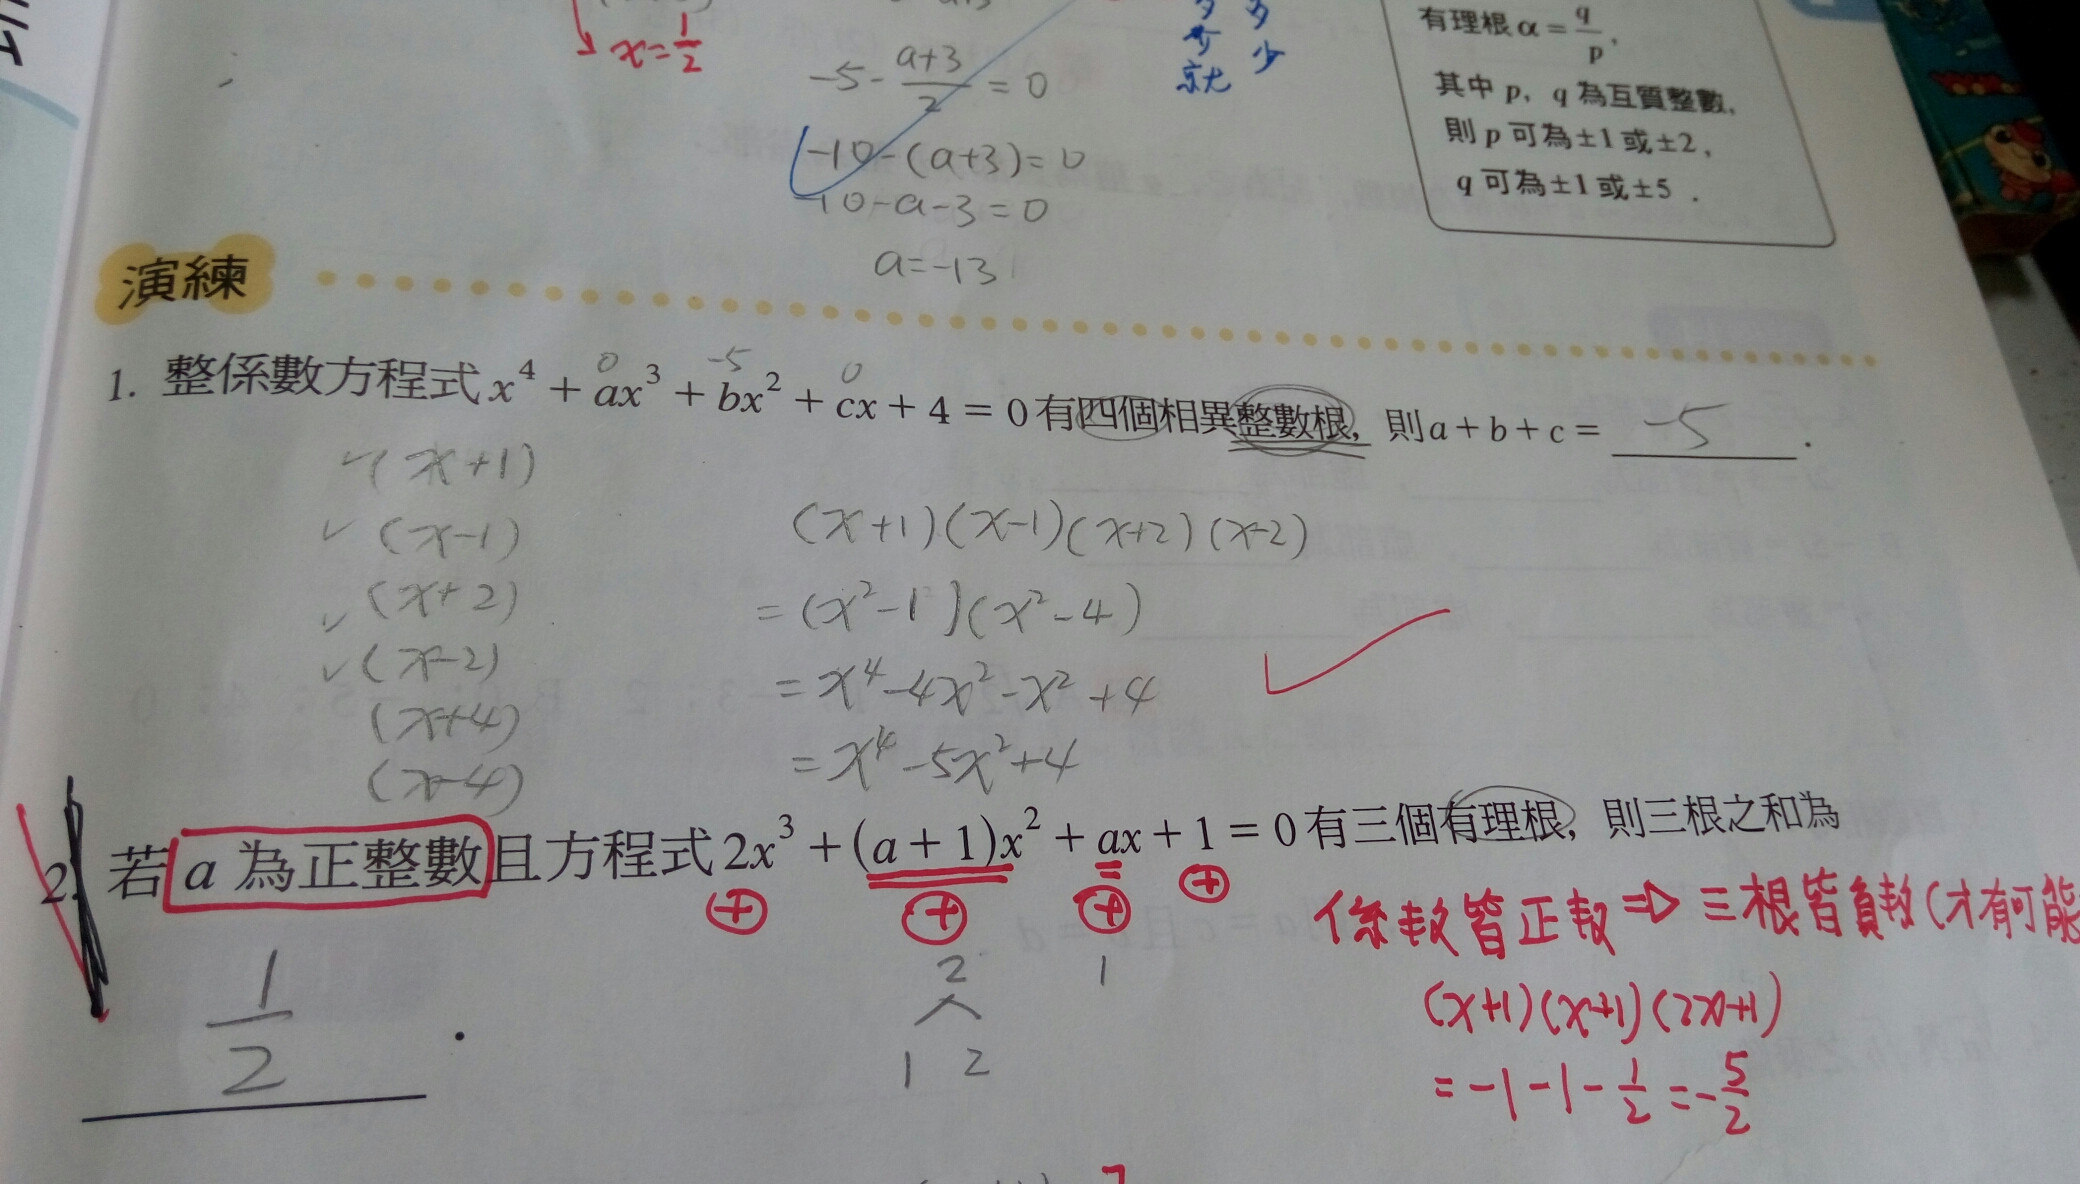 x=1/2
-5-(a+3)/2=0
-10-(a+3)=0
-10-a-3=0
a=-13
多 多
少 少
就
有理根α=q/p,
其中 p, q 為互質整數,
則 p 可為±1或±2,
q 可為±1或±5.
演練
0 -5 0
1. 整係數方程式 x⁴ + ax³ + bx² + cx + 4 = 0 有四個相異整數根, 則 a + b + c = -5 .
(x+1)
(x-1)
(x+2)
(x-2)
(x+4)
(x-4)
(x+1)(x-1)(x+2)(x-2)
=(x²-1)(x²-4)
=x⁴-4x²-x²+4
=x⁴-5x²+4
2. 若 a 為正整數且方程式 2x³ + (a + 1)x² + ax + 1 = 0 有三個有理根, 則三根之和為
+ + + +
1/2 .
2 1
1 2
係數皆正數⇒三根皆負數(才有可能
(x+1)(x+1)(2x+1)
=-1-1-1/2=-5/2